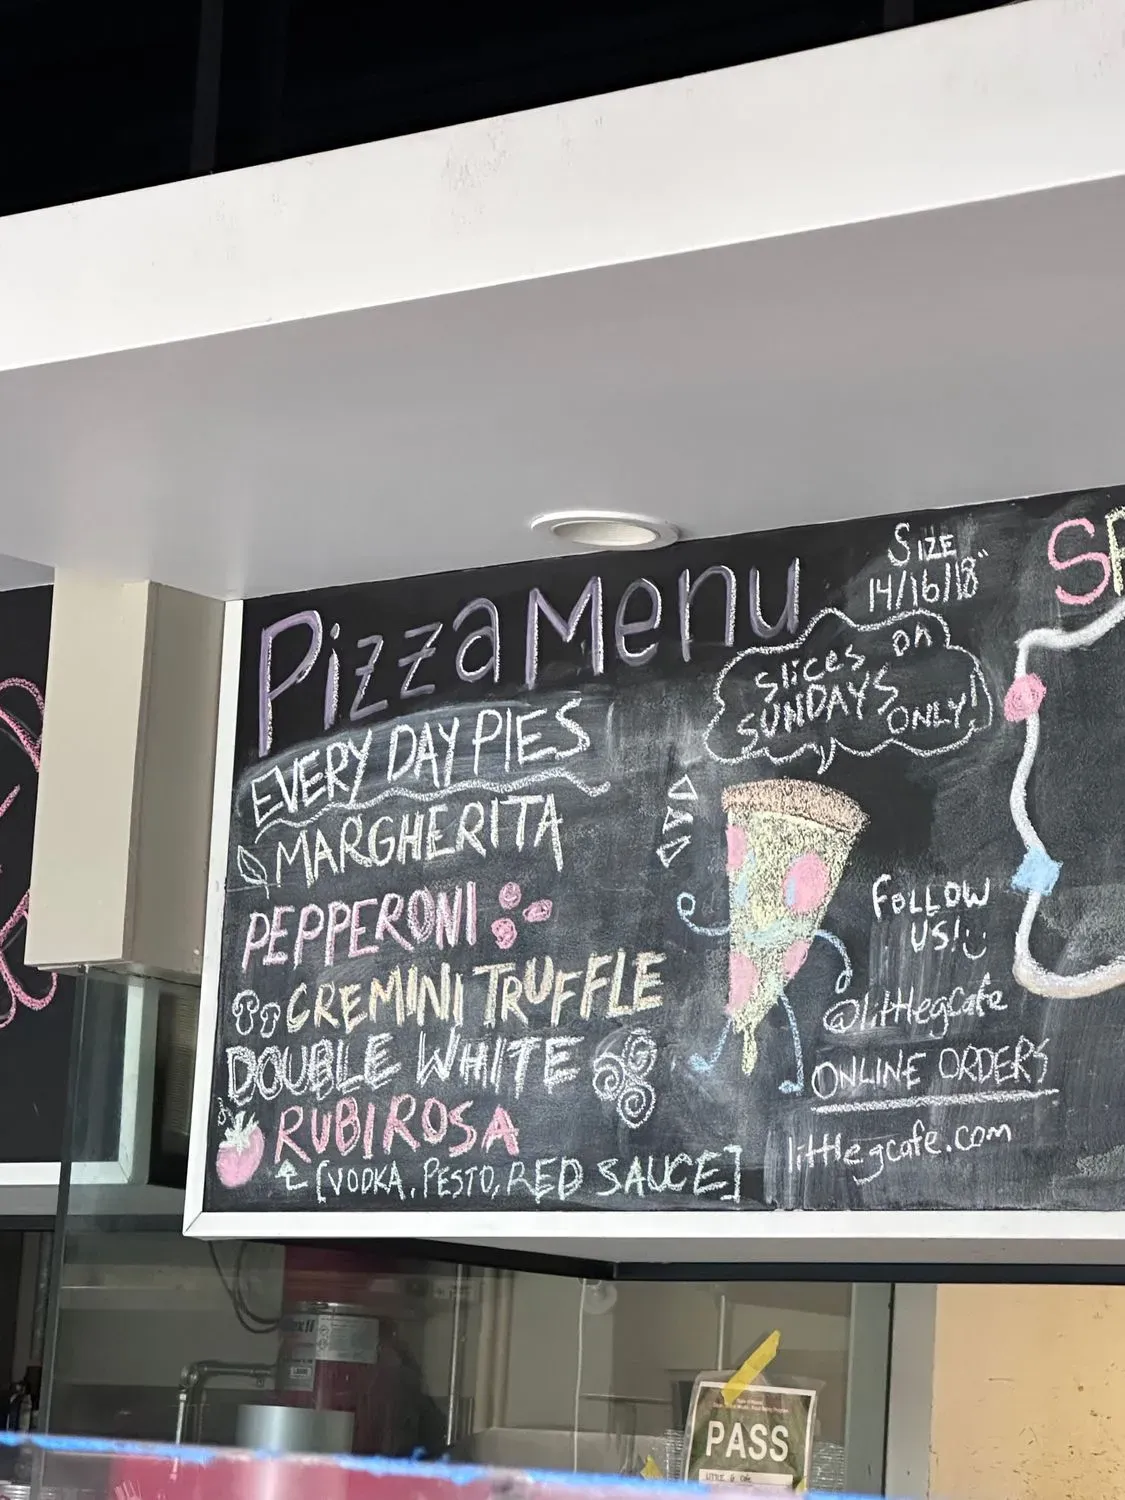 Pizza Menu
SIZE
14/16/18"
EVERY DAY PIES
slices on
SUNDAYS
ONLY!
MARGHERITA
PEPPERONI
CREMINI TRUFFLE
DOUBLE WHITE
RUBIROSA
[VODKA, PESTO, RED SAUCE]
FOLLOW
US!
@littlegcafe
ONLINE ORDERS
littlegcafe.com
PASS
LITTLE G CAFE